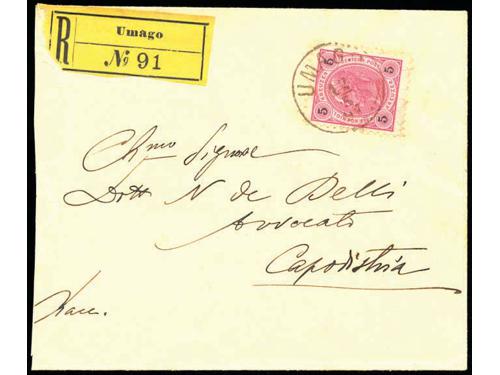 R
Umago
№ 91
UMAG
5 5
5 5
Chmo Signore
Dott N de Belli
Avvocato
Capodistria
Racc.